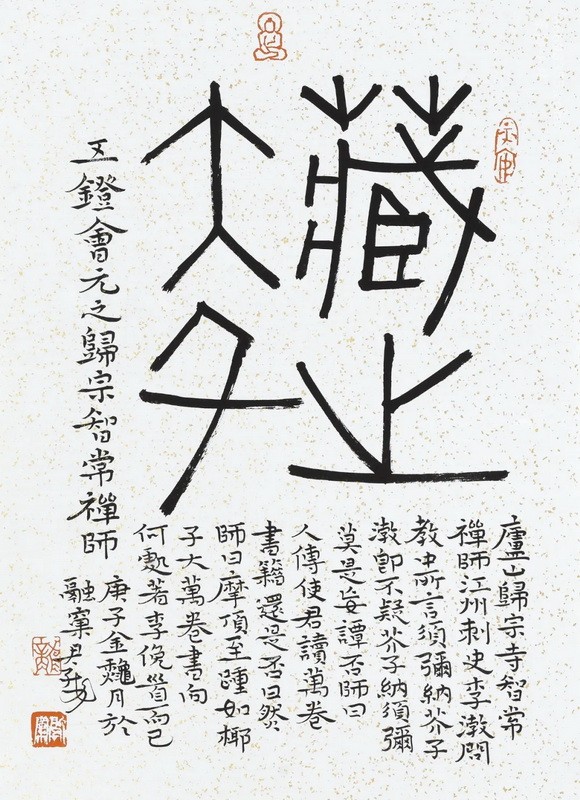 藏之
大千
五鐙會元之歸宗智常禪師
廬山歸宗寺智常
禪師江州刺史李渤問
教中所言須彌納芥子
渤即不疑芥子納須彌
莫是妄譚否師曰
人傳使君讀萬卷
書籍還是否曰然
師曰摩頂至踵如椰
子大萬卷書向
何處著李俛首而已
庚子金龝月於
融窠